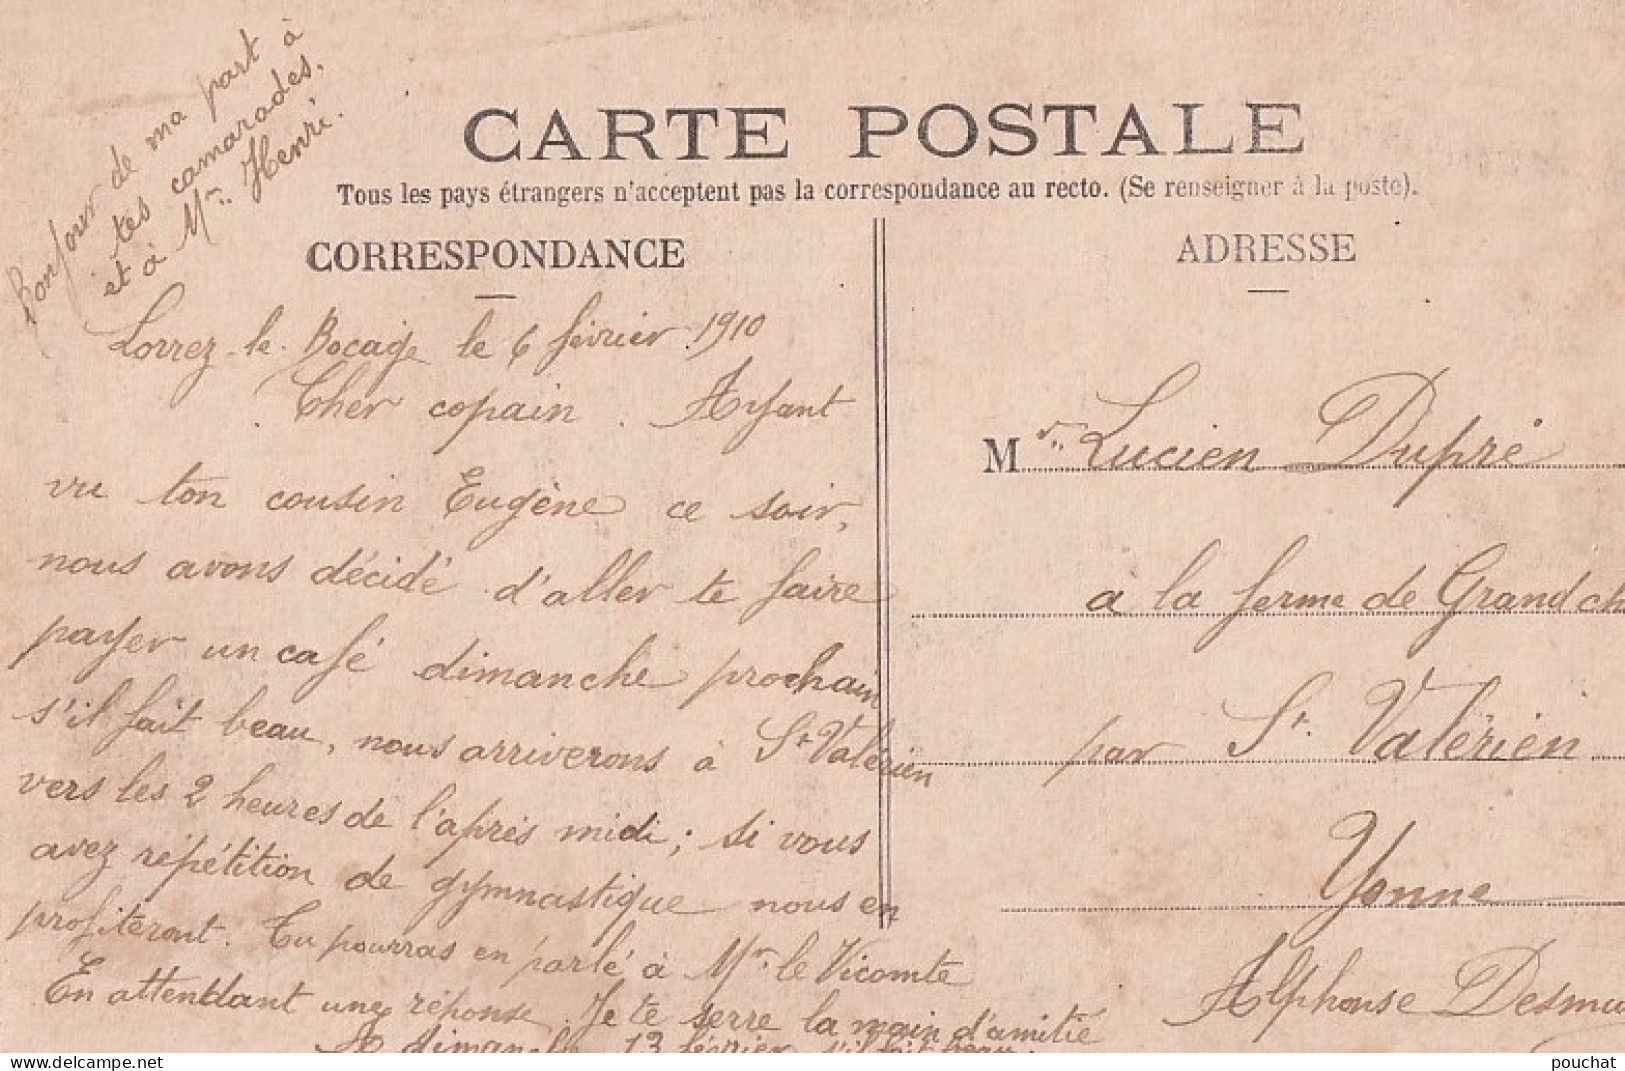 Bonjour de ma part à
tes camarades,
et à Mr. Henri.
CARTE POSTALE
Tous les pays étrangers n'acceptent pas la correspondance au recto. (Se renseigner à la poste).
CORRESPONDANCE
Lorrez-le-Bocage le 6 février 1910
Cher copain. Ayant
vu ton cousin Eugène ce soir,
nous avons décidé d'aller te faire
payer un café dimanche prochain
s'il fait beau, nous arriverons à St Valérien
vers les 2 heures de l'après midi; si vous
avez répétition de gymnastique nous en
profiteront. Tu pourras en parlé à Mr. le Vicomte
En attendant une réponse. Je te serre la main d'amitié
A dimanche 13 février s'il fait beau.
ADRESSE
Mr. Lucien Dupré
à la ferme de Grand ch
par St. Valérien
Yonne
Alphonse Desmu
pouchat